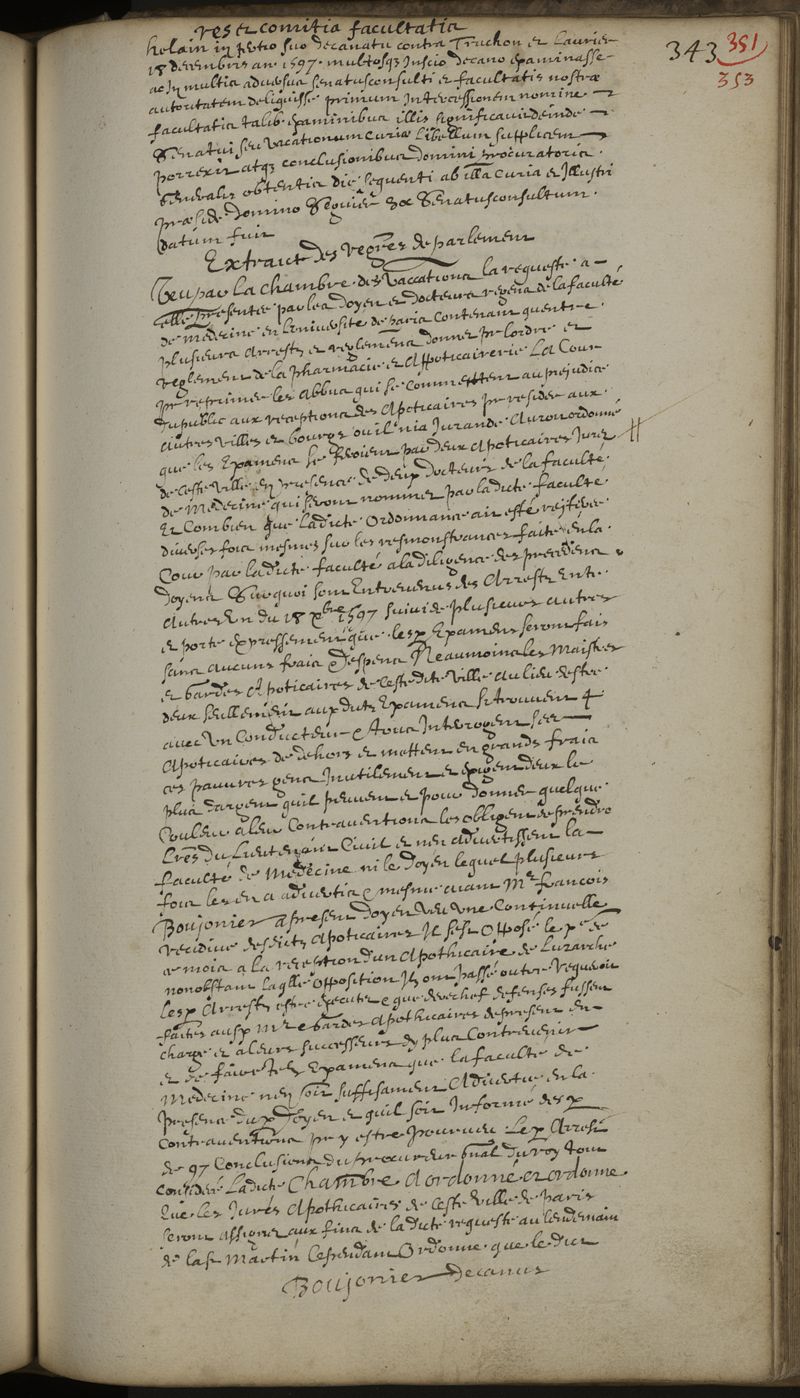 res et comitia facultatis
343 351
353
helain in petro suo decanatu contra Truchon et Laurier
18 decembris an 1597. multosq3 inscio decano examinasse
ac in multis adversus senatusconsulti et facultatis nostræ
autoritatem deliquisse primum intercessionem nomine
facultatis talib examinibus illis significavit deinde
Senatui seu vacationum curiæ libellum supplicem
porrexit atq3 conclusionibus domini procuratoris
Generalis obtentis die sequenti ab illa curia et Illustri
præside domino Seguier hoc Senatusconsultum
datum fuit
Extraict des regres de parlement
Veu par la chambre des Vaccations la requeste a
elle presentée par les doyen et docteurs regens de la faculté
de Medecine en Luniversité de paris contenant quentre
plusieurs Arrests et reglemens donnez pr lordre et
reglement de la pharmacie et Appoticairerie La Cour
pr reprimer les abbus qui se commettent au prejudice
du public aux receptions des Apoticaires pr resider aux
autres villes et bourgs ou il nia Jurande Auroit ordonné
que les Examens se feroient par deux Apoticaires Jurez
de ceste ville en presence de deux docteurs de la faculté
de Medecine qui seront nommez par ladicte faculté
Et Combien que ladicte Ordonnance ait esté reiterée
diverses fois mesmes sur les remonstrances faites en la
Cour par ladicte faculté a la diligence des precedens
doyens Surquoi sont Entrevenus des Arrests Entre
Autres Un du 18 xbre 1597 suivi de plusieurs autres
et porte expressement que lesd Examens seront fais
sans aucuns frais despens Neaumoins les Maistres
et gardes Apoticaires de ceste dite ville au lieu destre
deux seullement auxdicts Examens se trouvent 4
avec Un Conducteur & tous Interrogent les
Apoticaires de dehors et mettent en grands frais
ces pauvres gens Inutilement et exigent deux le
plus dargent quil peuvent et pour donner quelque
couleur a leur Contraventions les obligent de prendre
Lres du Lieutenant Civil et nen advertissent la
faculté de Medecine ni le Doyen lequel plusieurs
fois les en a advertis & mesme avant Mr francois
Boujonier apresent doyen veu une Continuelle
recidive desdicts Apoticaires Il sest Opposé le pr de
ce mois a la reception dun Apothicaire de Luzarche
nonobstant laqlle Opposition Ils ont passé outre Requeroit
lesd Arrests estre executez & que derechef defenses fussent
faites ausd Mr & gardes Apothicaires depresent en
charge et a leurs successeurs dy plus Contrevenir
et de faire telz Examens que la faculté de
Medecine nen soit suffisament Advertie en la
presence dud Doyen et quil soit Informé desd
contraventions pr y estre pourveu Led Arrest
de 97 Conclusions du procureur gnal du roy tout
consideré Ladicte Chambre A ordonné et ordonne
Que les Jurés Apothicaires de Ceste Ville de Paris
seront assignez aux fins de ladicte requeste au lendemain
de la St Martin Cependant Ordonne que ledict
Boujonier decanus